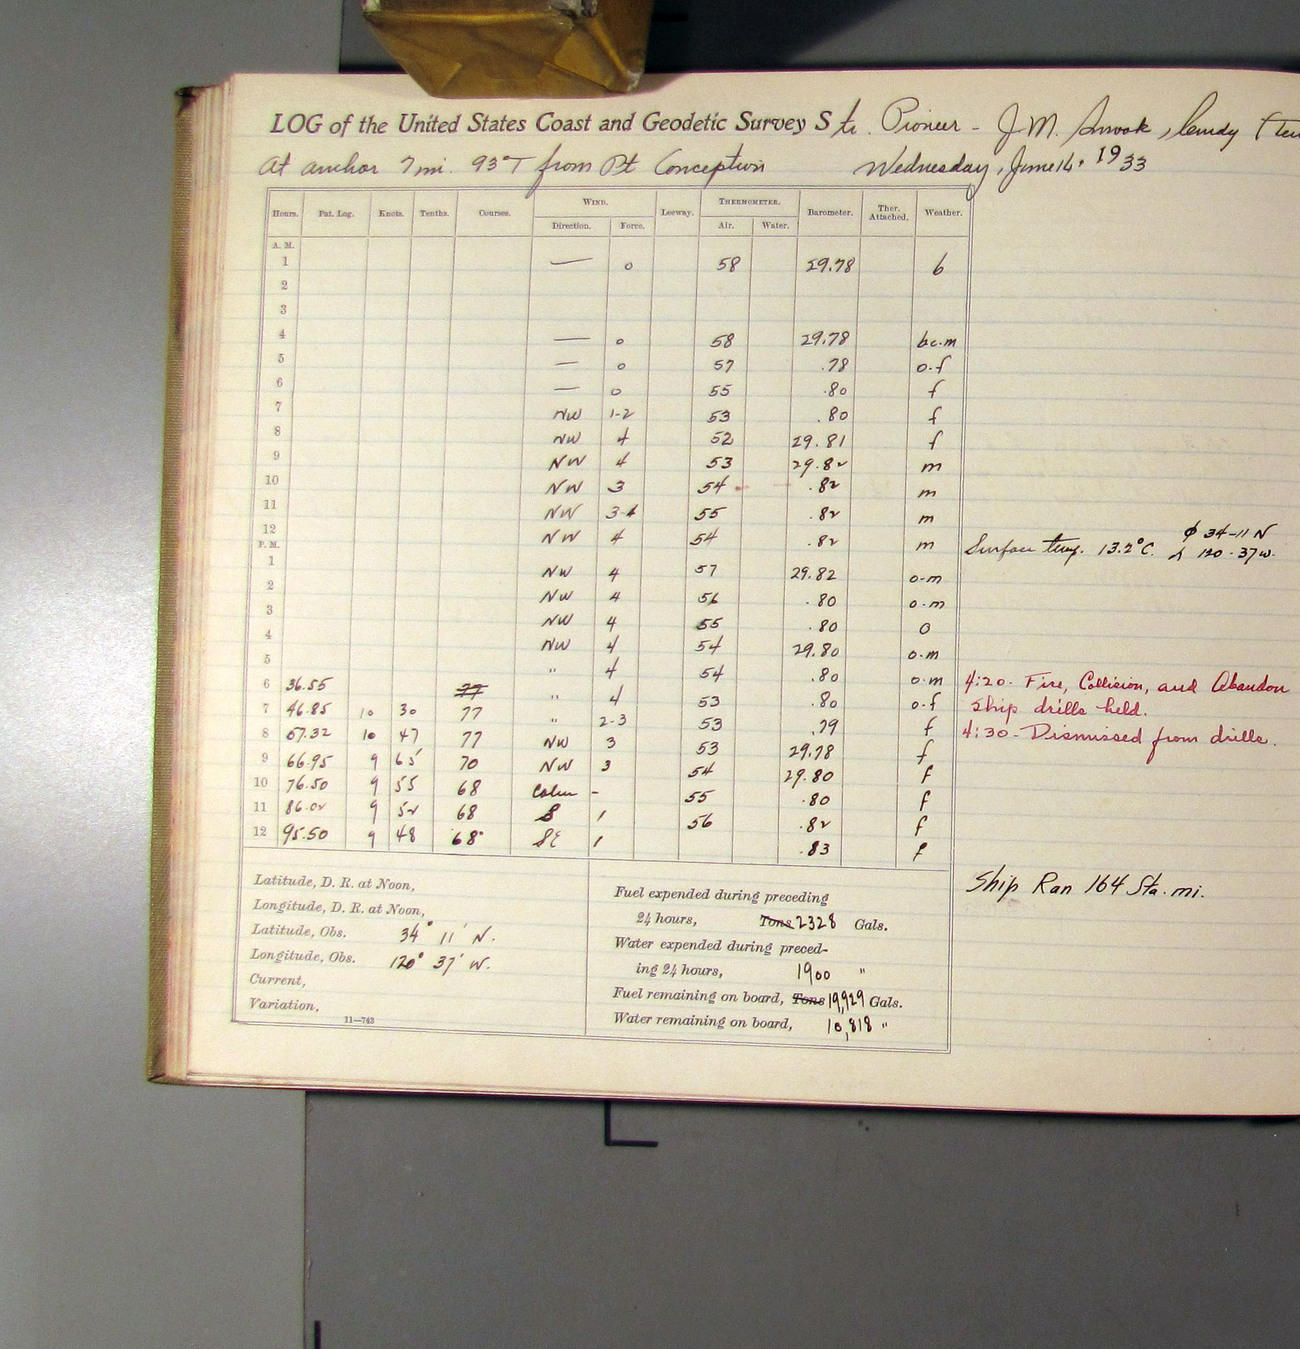 LOG of the United States Coast and Geodetic Survey Str. Pioneer - J. M. Smook, Comdg
At anchor 7 mi. 93°T from Pt Conception Wednesday, June 14, 1933
Hours. Pat. Log. Knots. Tenths. Courses. WIND. Leeway. THERMOMETER. Barometer. Ther. Attached. Weather.
Direction. Force. Air. Water.
A. M.
1 — 0 58 29.78 b
2
3
4 — 0 58 29.78 bc.m
5 — 0 57 .78 o.f
6 — 0 55 .80 f
7 NW 1-2 53 .80 f
8 NW 4 52 29.81 f
9 NW 4 53 29.82 m
10 NW 3 54 .82 m
11 NW 3-4 55 .82 m
12 NW 4 54 .82 m Surface temp. 13.2°C. φ 34-11 N
λ 120-37 W.
P. M.
1 NW 4 57 29.82 o-m
2 NW 4 56 .80 o.m
3 NW 4 55 .80 o
4 NW 4 54 29.80 o.m
5 " 4 54 .80 o.m 4:20- Fire, Collision, and Abandon
6 36.55 77 " 4 53 .80 o.f Ship drills held.
7 46.85 10 30 77 " 2-3 53 .79 f 4:30- Dismissed from drills.
8 57.32 10 47 77 NW 3 53 29.78 f
9 66.95 9 65 70 NW 3 54 29.80 f
10 76.50 9 55 68 Calm - 55 .80 f
11 86.02 9 52 68 S 1 56 .82 f
12 95.50 9 48 68 SE 1 .83 f
Ship Ran 164 Sta. mi.
Latitude, D. R. at Noon,
Longitude, D. R. at Noon,
Latitude, Obs. 34° 11' N.
Longitude, Obs. 120° 37' W.
Current,
Variation,
11—743
Fuel expended during preceding
24 hours, Tons 2328 Gals.
Water expended during preced-
ing 24 hours, 1900 "
Fuel remaining on board, Tons 19,929 Gals.
Water remaining on board, 10,818 "